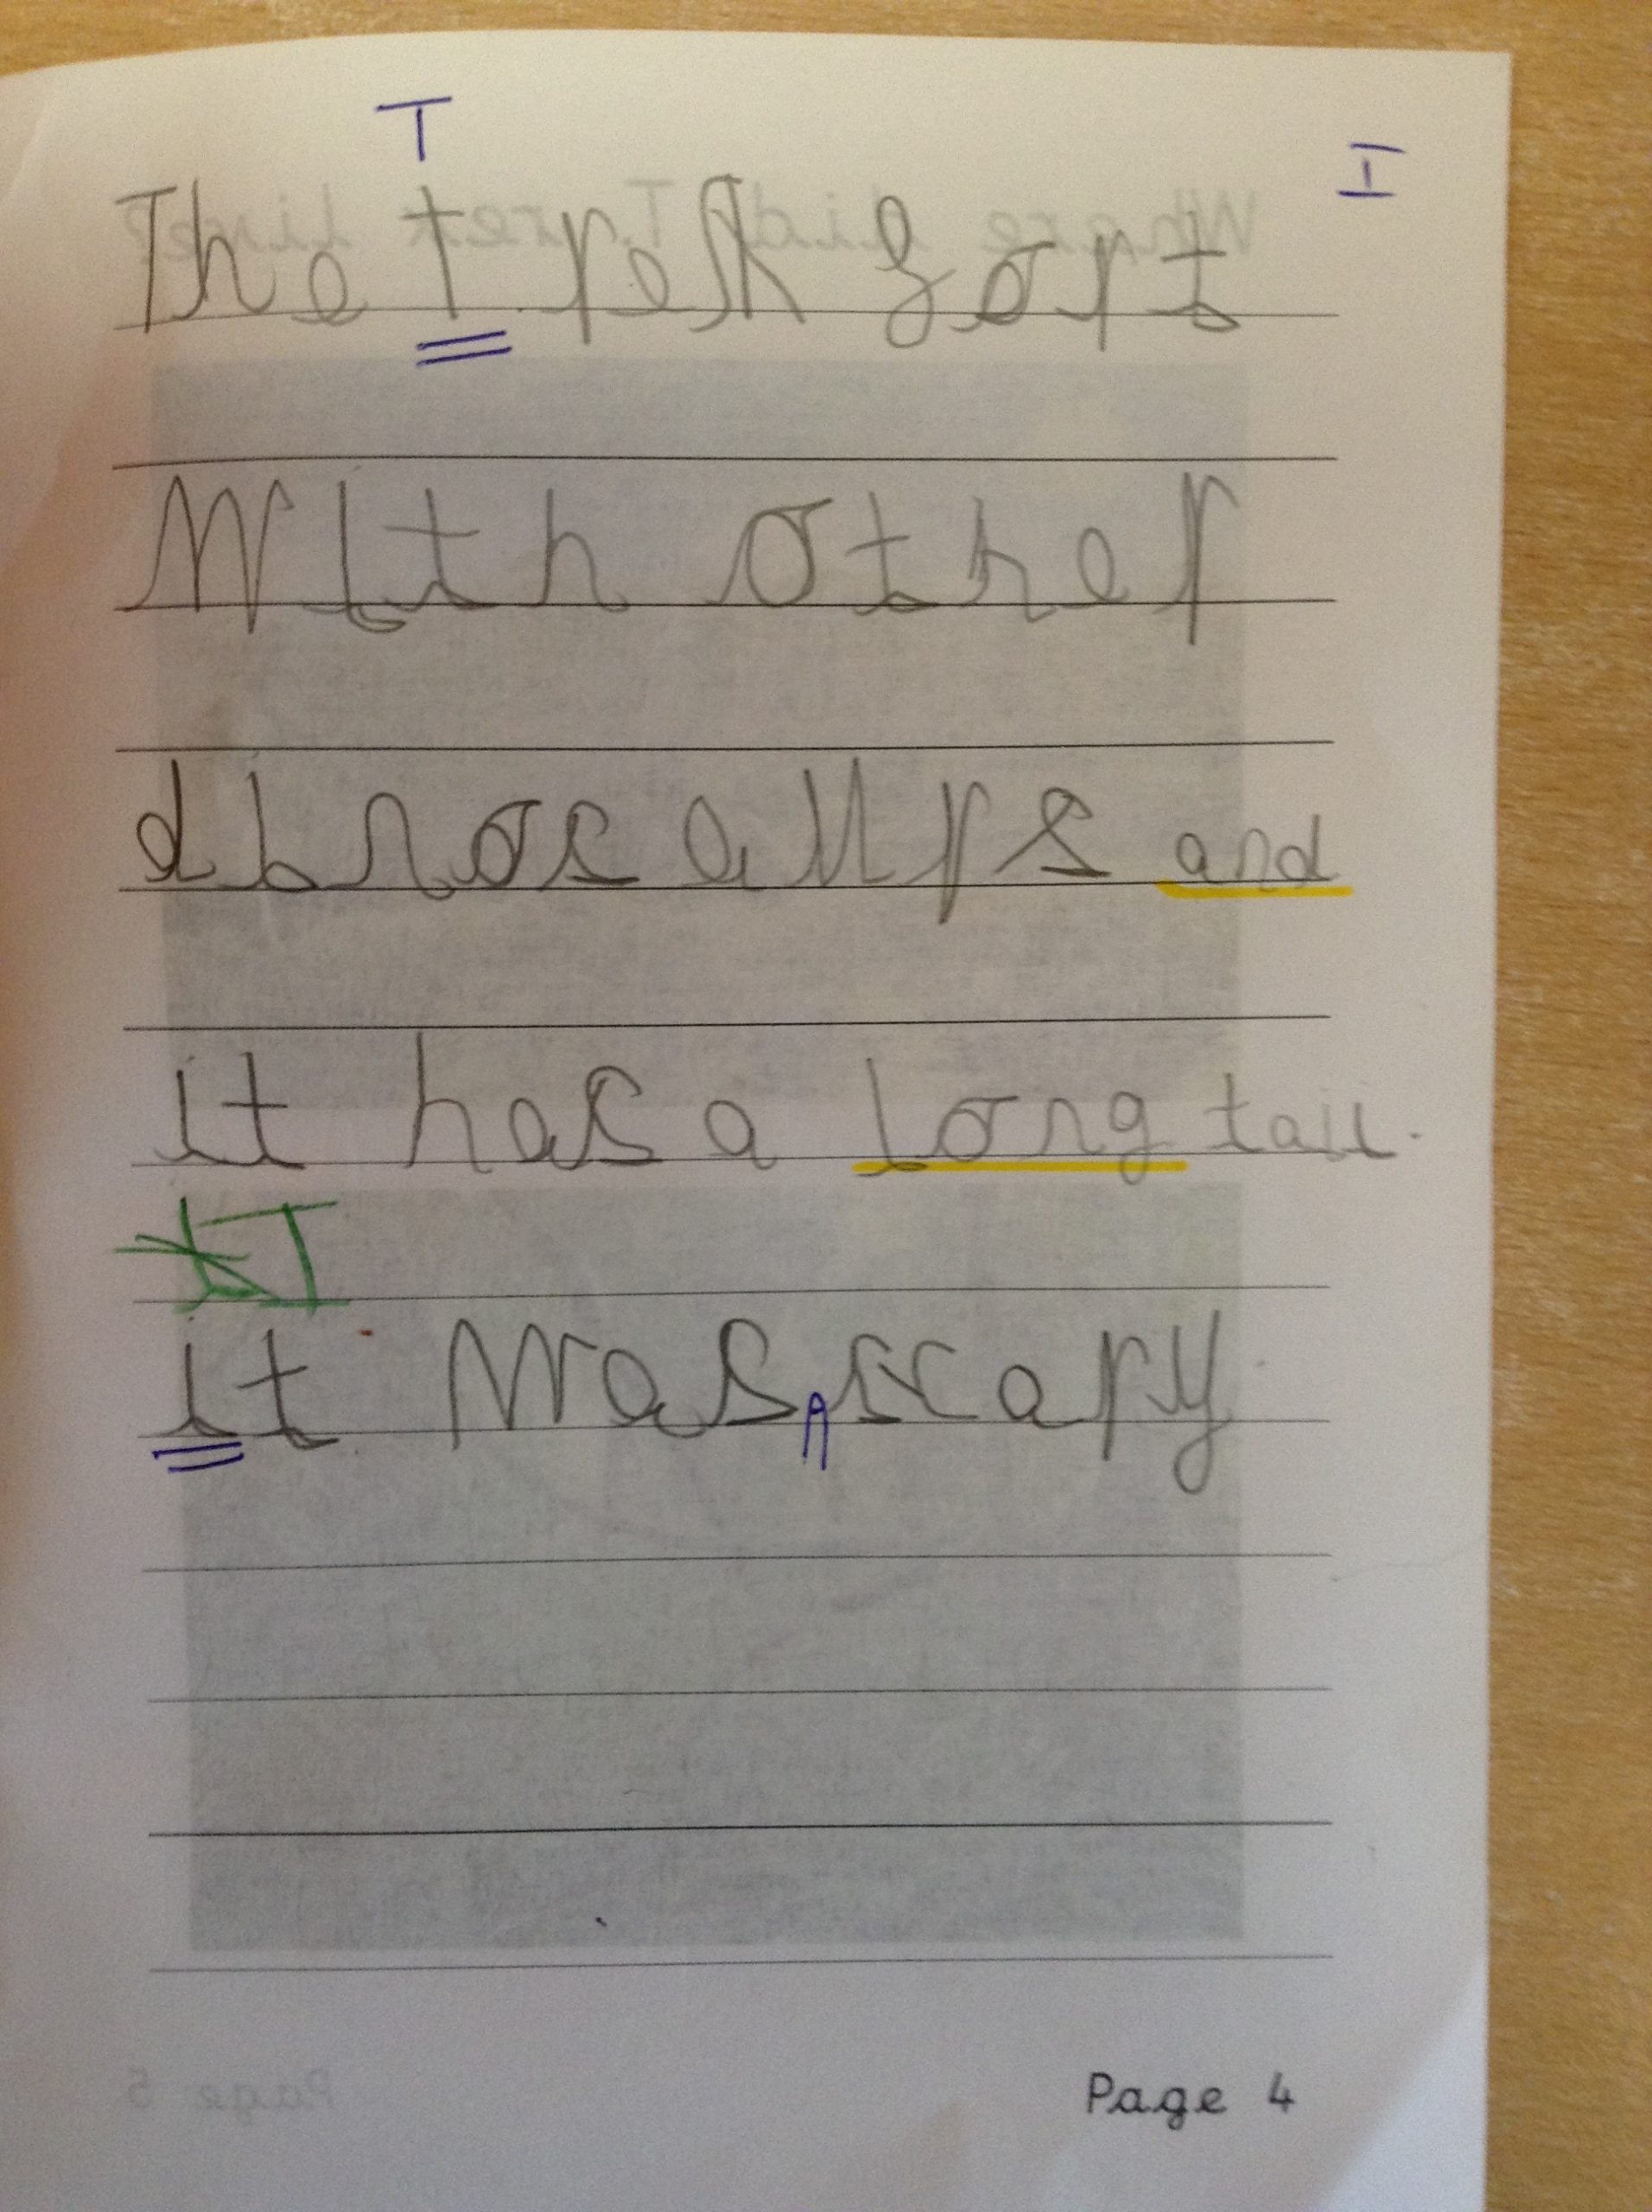 T I
The T rex fort
With other
dinosaurs and
it has a long tail.
I
it was scary
Page 4